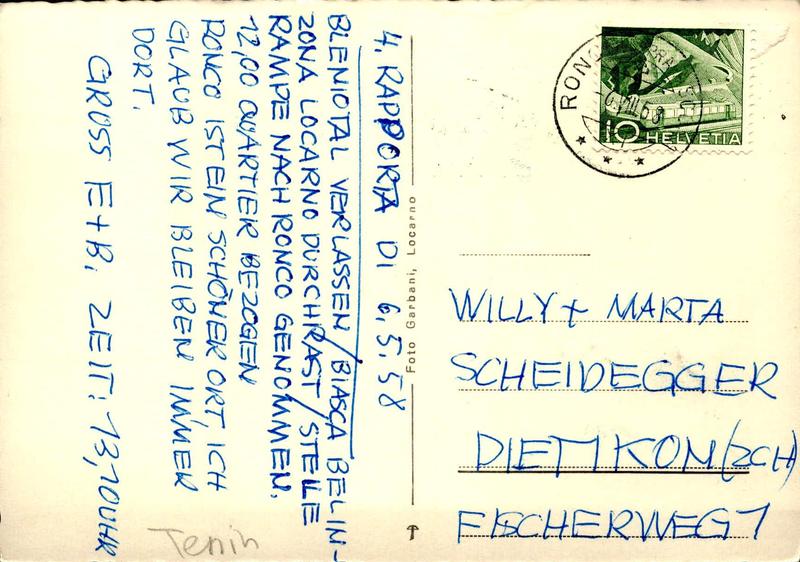 4. RAPPORTA DI 6.5.58
BLENIOTAL VERLASSEN/BIASCA BELIN-
ZONA LOCARNO DURCHRAST/STEILE
RAMPE NACH RONCO GENOMMEN.
12,00 QUARTIER BEZOGEN
RONCO IST EIN SCHÖNER ORT, ICH
GLAUB WIR BLEIBEN IMMER
DORT.
GRUSS E+B. ZEIT: 13,10 UHR
Foto Garbani, Locarno
RONCO
10 HELVETIA
WILLY + MARTA
SCHEIDEGGER
DIETIKOM (ZCH)
FISCHERWEG 7